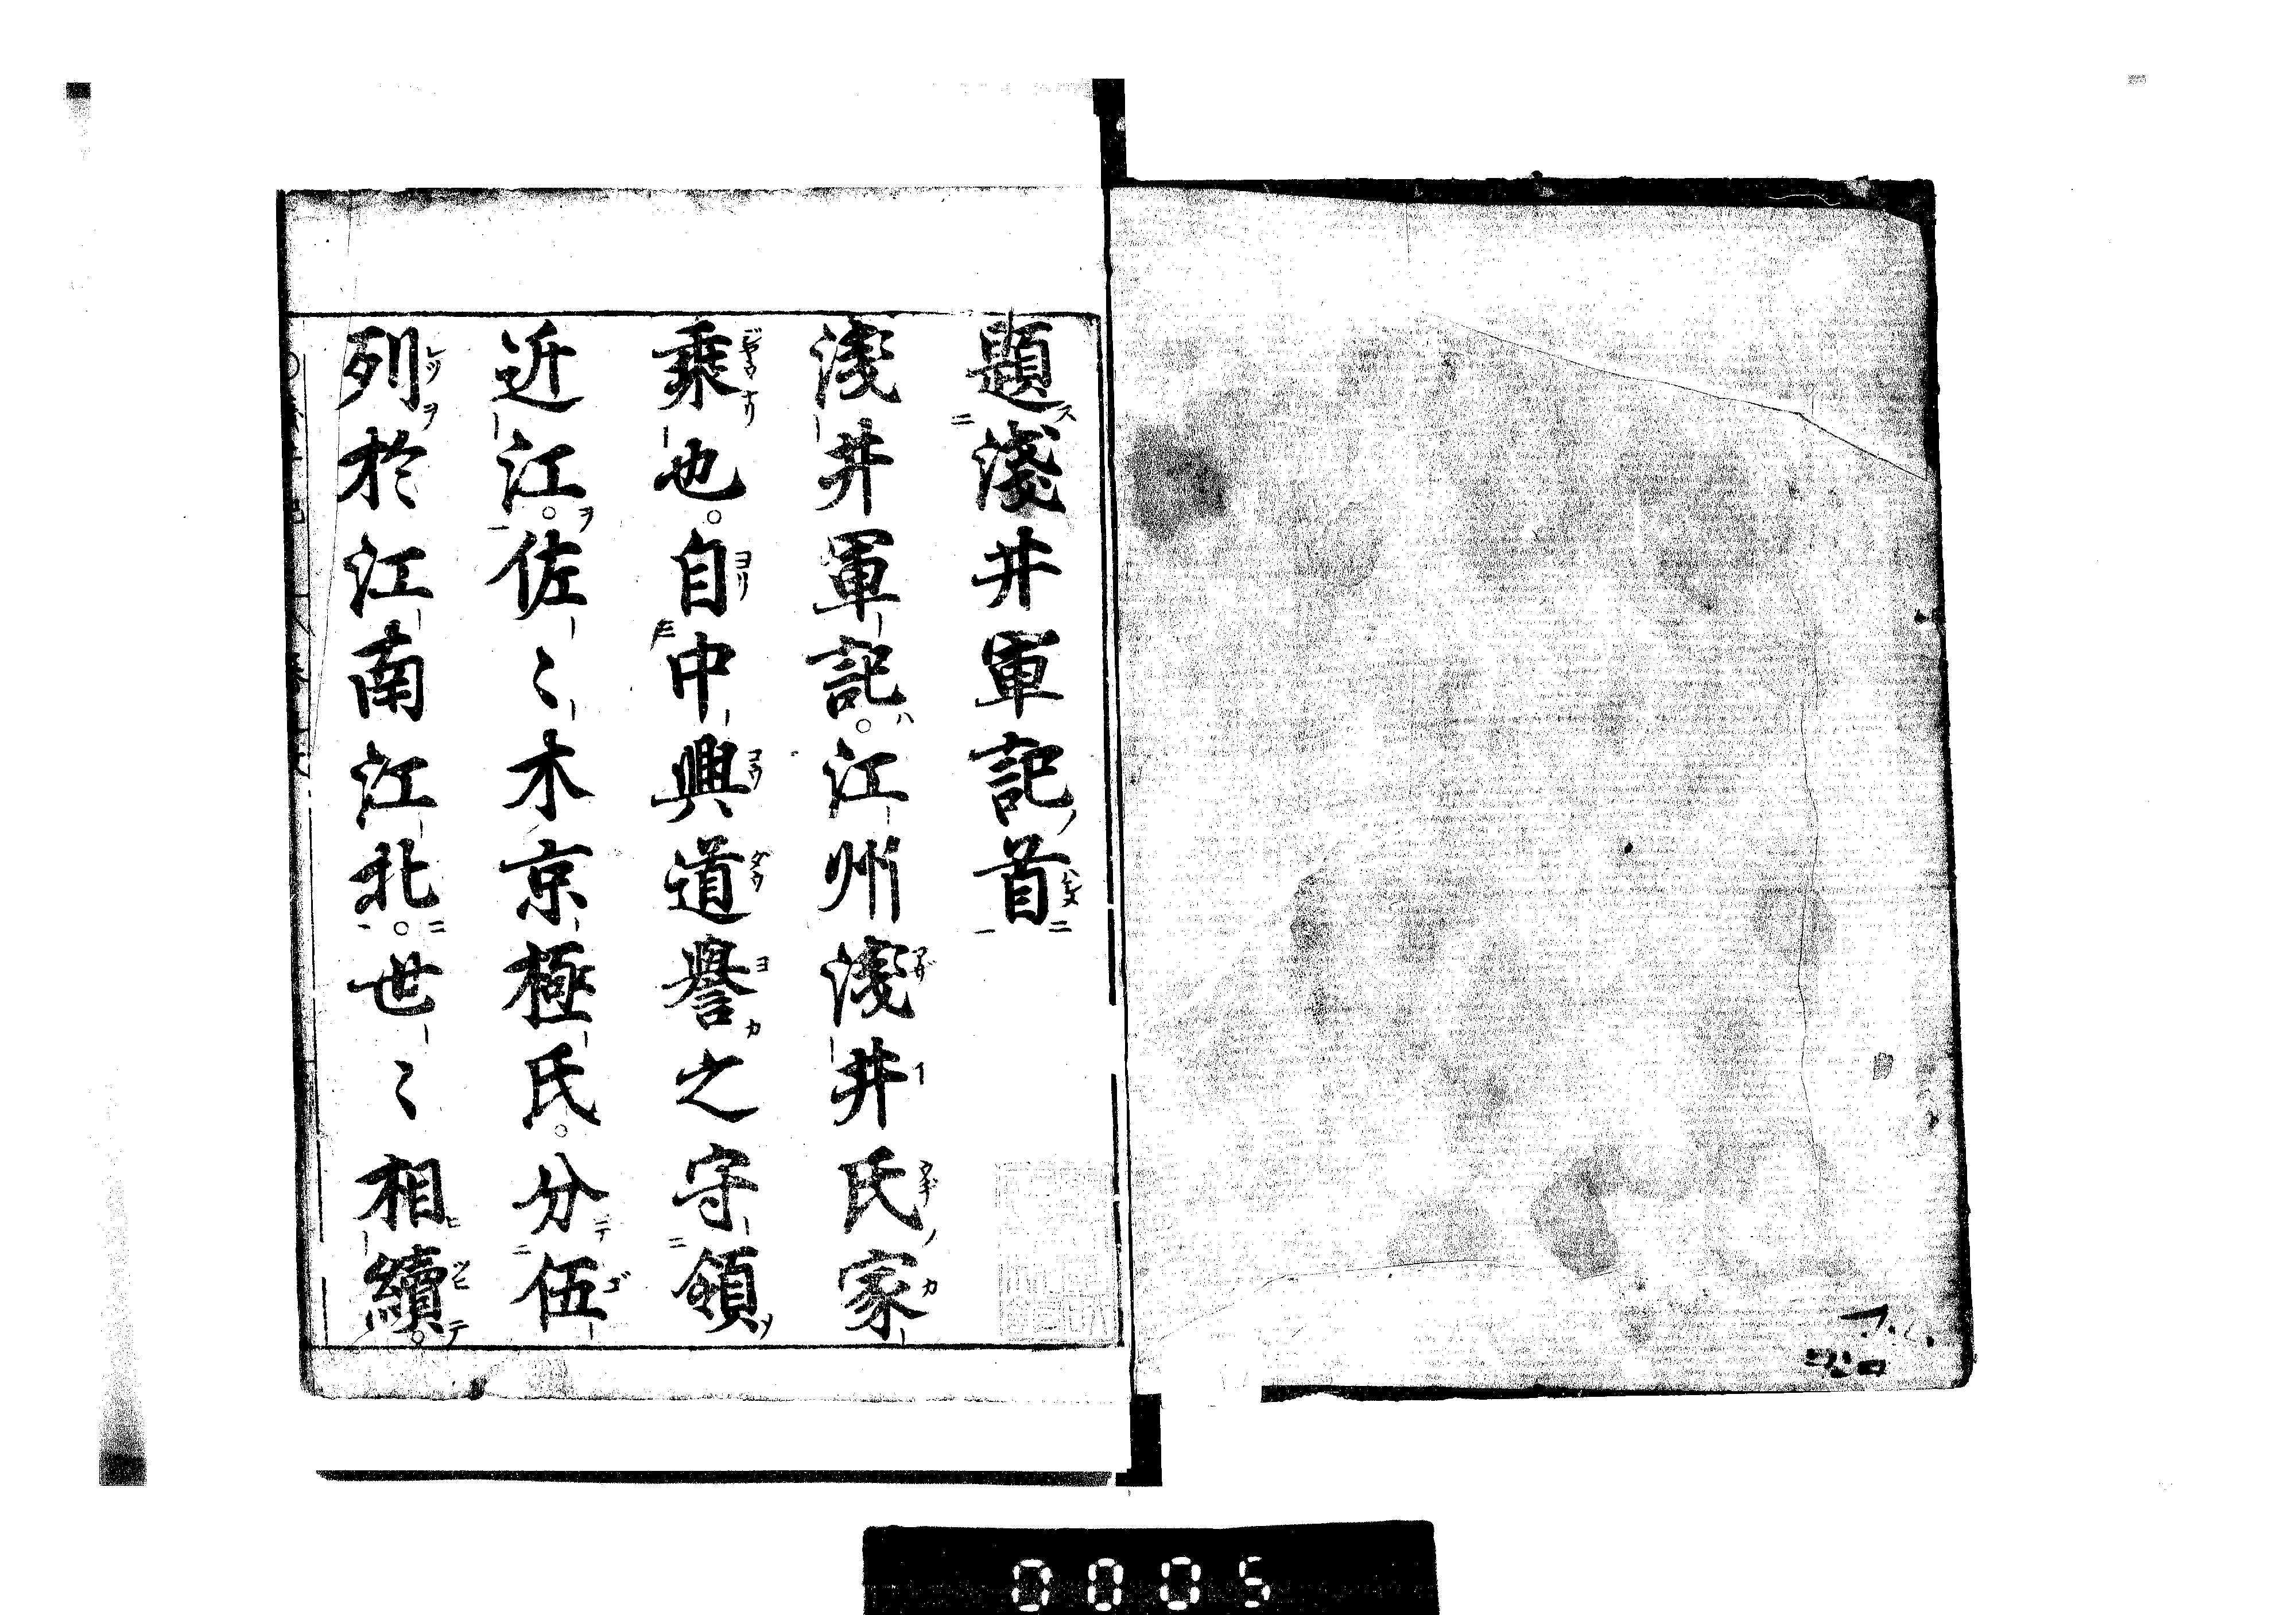 題淺井軍記首
淺井軍記。江州淺井氏家
乘也。自中興道譽之守領
近江。佐〻木京極氏。分伍
列於江南江北。世〻相續。
0005